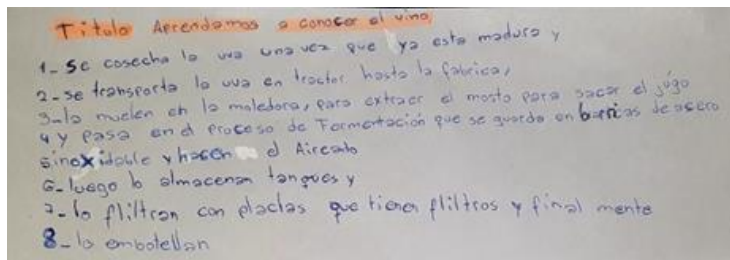 Titulo Aprendamos a conocer el vino,
1-Se cosecha la uva una vez que ya esta madura y
2-se transporta la uva en tractor hasta la fabrica,
3-la muelen en la moledora, para extraer el mosto para sacar el jugo
4 y pasa en el proceso de Fermentación que se guarda en barricas de asero
5inoxidable y hacen el Aireado
6-luego lo almacenan tanques y
7-lo fliltran con placlas que tienen fliltros y final mente
8-lo embotellan